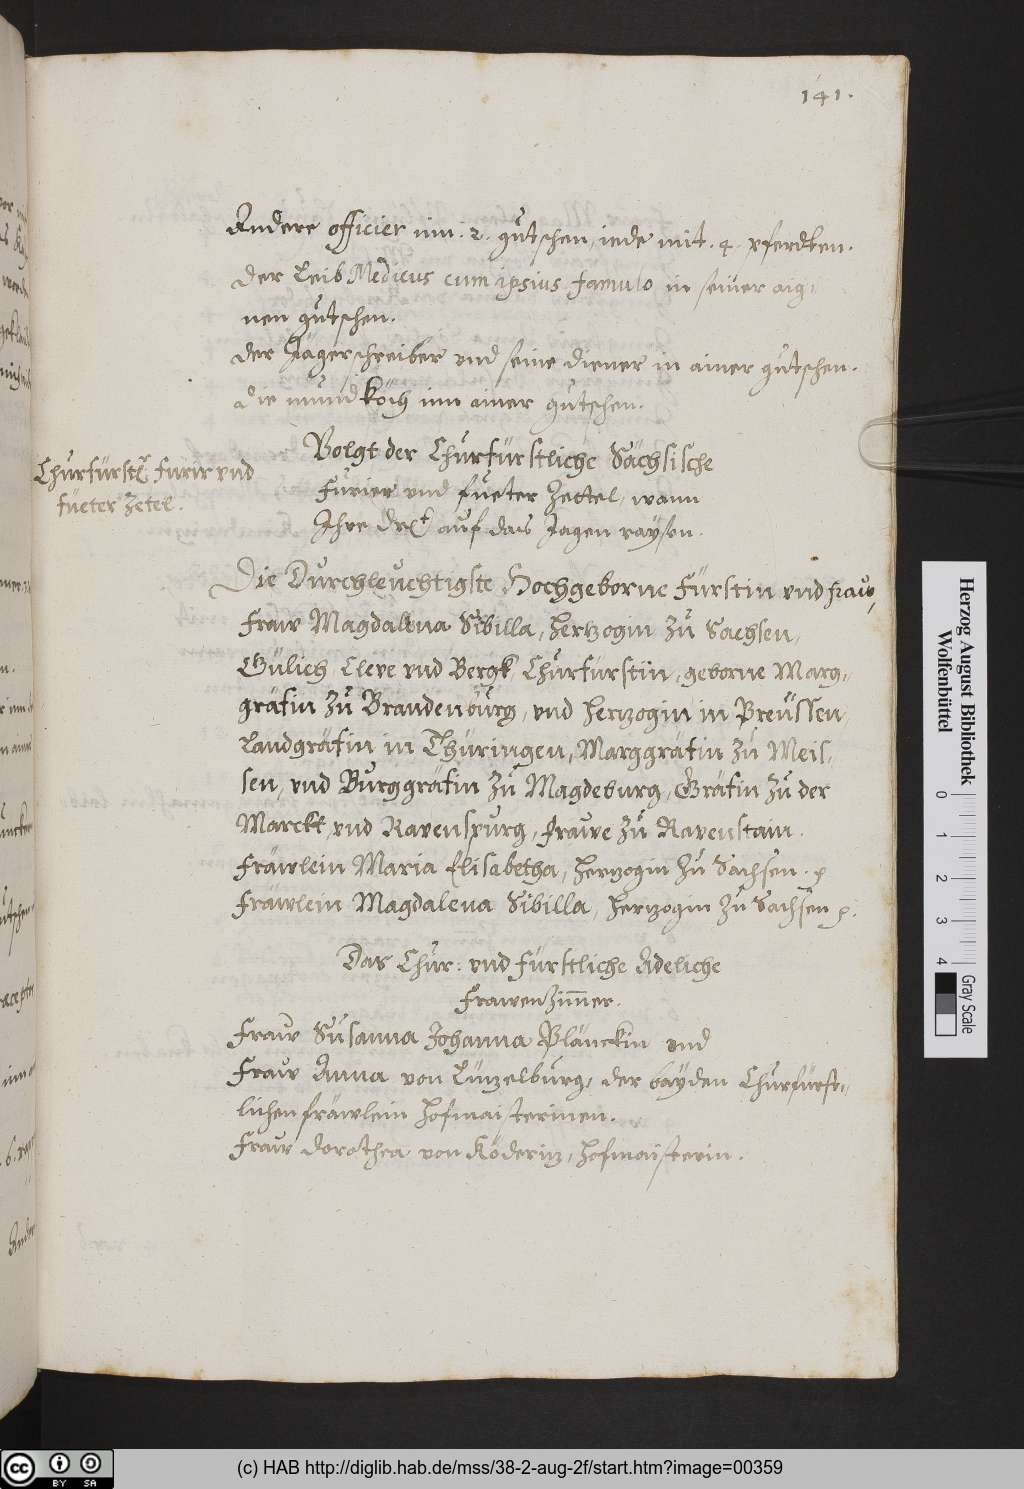 141.
Andere officier inn . 2 . gutschen, iede mit . 4 . pferdten .
Der Leib Medicus cum ipsius famulo in seiner aig=
nen gutschen.
Der Jägerschreiber vnd seine diener in ainer gutschen .
Die mund Köch inn ainer gutschen .
Churfürstl. furir vnd
fueter Zetel .
Volgt der Churfürstliche Sächsische
Furier vnd fueter Zettel, wann
Ihre Drlt auf das Jagen raysen .
Die Durchleuchtigste Hochgeborne Fürstin vnd fraw,
Fraw Magdalena Sibilla, Hertzogin Zu Sachsen,
Gülich Cleve vnd Bergk Churfürstin, geborne Marg=
gräfin Zu Brandenburg, vnd Hertzogin in Preussen,
Landgräfin in Thüringen, Marggräfin Zu Meis=
sen, vnd Burggräfin Zu Magdeburg, Gräfin Zu der
Marckt, vnd Ravenspurg, frawe Zu Ravenstain .
Fräwlein Maria Elisabetha, Hertzogin Zu Sachsen .
Fräwlein Magdalena Sibilla, Hertzogin Zu Sachsen
Das Chur : vnd fürstliche Adeliche
Frawenzimmer .
Fraw Susanna Johanna Plänckin vnd
Fraw Anna von Lünzelburg, der bayden Churfürst=
lichen fräwlein hofmaisterinen .
Fraw Dorothea von Köderiz, hofmaisterin .
Herzog August Bibliothek
Wolfenbüttel
0 1 2 3 4
Gray Scale
CC BY SA
(c) HAB http://diglib.hab.de/mss/38-2-aug-2f/start.htm?image=00359